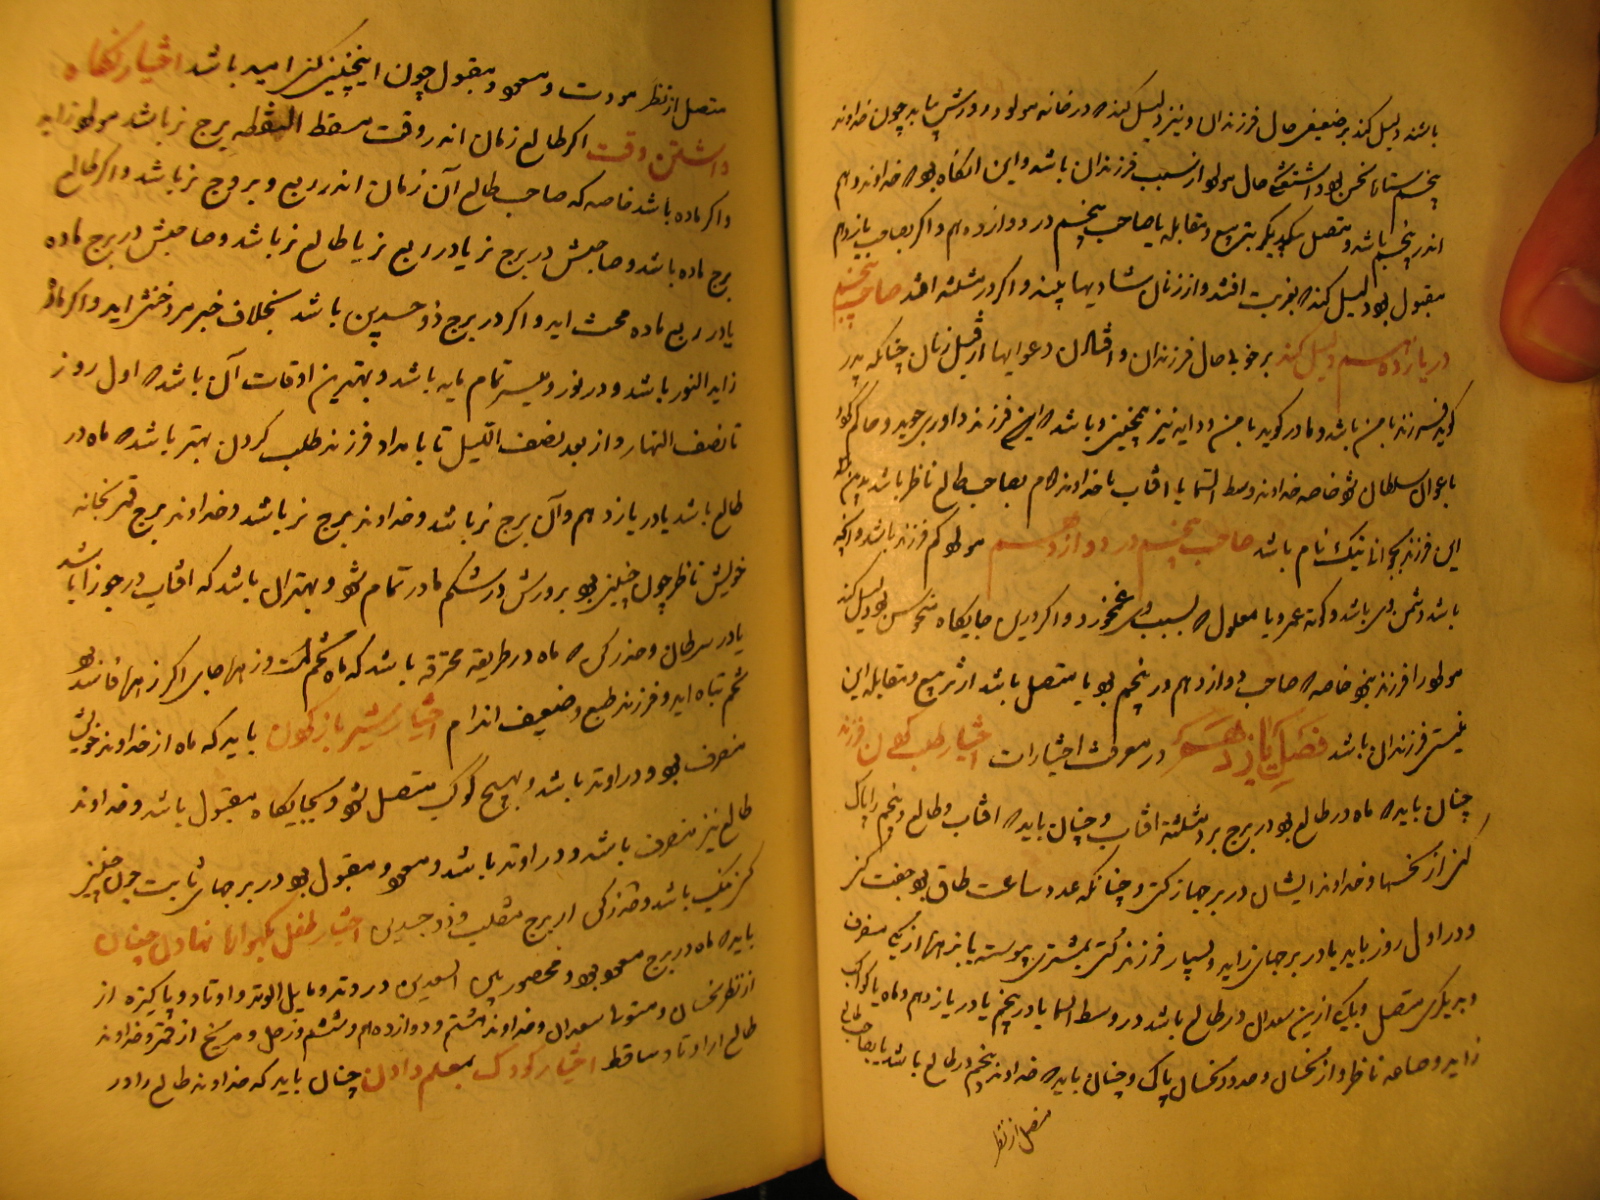 باشند دلیل کند بر ضعیفی حال فرزندان و نیز دلیل کند که در خانه مولود درویش باید چون خداوند
پنجم ستاره نحس بود آشفتگی حال مولود از سبب فرزندان باشد و این انگاه بود که خداوند دهم
اندر پنجم باشد و متصل یکدیگر بتربیع و مقابله یا صاحب پنجم در دوازدهم و اگر بصاحب یازدهم
مقبول بود دلیل کند که بغربت افتد و از زنان شادیها بیند و اگر در مثلثه افتد صاحب پنجم
در یازدهم دلیل کند بر خوبی حال فرزندان و دعویها از قبل زنان چنانکه پدر
گوید فرزند با من باشد و مادر گوید با من و دایه نیز همچنین و باشد که این فرزند داوری جوید و حاکم گردد
با عوان سلطان شود خاصه خداوند وسط السما یا افتاب یا خداوند دهم بصاحب طالع ناظر باشد
این فرزند نیک نام باشد صاحب پنجم در دوازدهم مولود کم فرزند باشد و آنچه
باشد دشمن وی باشد و کوته عمر و یا معلول و بسبب وی غم خورد و اگر در این جایگاه منحوس بود دلیل کند
مولود را فرزند نبود خاصه که صاحب دوازدهم در پنجم بود یا متصل باشد از تربیع و مقابله این
نیستی فرزندان باشد فصل یازدهم در معرفت اختیارات اختیار طلب کردن فرزند
چنان باید که ماه در طالع بود در برج نر در مثلثه افتاب و چنان باید که افتاب و طالع و پنجم را پاک
کنی از نحسها و خداوند ایشان در برجها نر کنی و چنانکه عدد ساعت طاق بود جفت کنی
و در اول روز باید یا در برجهای زاینده و بسیار فرزند کنی بمشتری پیوسته یا بزهره از یکی منصرف
و بدیگری متصل و یکی ازین سعدان در طالع باشد در وسط السما یا در پنجم یا در یازدهم و ماه
زاید و صاعد ناظر و از نحسان و حدود نحسان پاک و چنان باید که خداوند پنجم در طالع باشد یا بصاحب طالع
متصل از نظر
متصل از نظر مودت و مسعود و مقبول چون اینچنین کنی امید باشد اختیار نگاه
داشتن وقت اگر طالع زمان اندر وقت مسقط النطفه برج نر باشد مولود نر اید
و اگر ماده باشد خاصه که صاحب طالع آن زمان اندر ربع و بروج نر باشد و اگر طالع
برج ماده باشد و صاحبش در برج نر یا در ربع نر یا طالع نر باشد و صاحبش در برج ماده
یا در ربع ماده مخنث اید و اگر در برج ذوجسدین باشد بخلاف خبر مرد خنثی اید و اگر ماه
زاید النور باشد و در نور و سیر تمام مایه باشد و بهترین اوقات آن باشد که اول روز
تا نصف النهار و از بعد نصف اللیل تا بامداد فرزند طلب کردن بهتر باشد که ماه در
طالع باشد یا در یازدهم و آن برج نر باشد و خداوند برج نر باشد و خداوند برج قمر بخانه
خویش ناظر چون چنین بود پرورش در شکم مادر تمام شود و بهتر ان باشد که افتاب در جوزا باشد
یا در سرطان و حذر کن که ماه در طریقه محترقه باشد که ماه تخم است و زهره جای اگر زهره فاسد بود
تخم تباه اید و فرزند طبع و ضعیف اندام اختیار شیر باز کردن باید که ماه از خداوند خویش
منصرف بود و در اوتاد باشد و بهیچ کوکب متصل نشود و بجایگاه مقبول باشد و خداوند
طالع نیز منصرف باشد و در اوتاد باشد و مسعود و مقبول بود در برجهای ثابت چون چنین
کنی نیک باشد و حذر کن از برج منقلب و ذوجسدین اختیار طفل بگهواره نهادن چنان
باید که ماه در برج مسعود بود و محصور بین السعدین در وتد و مایل الوتد و اوتاد و پاکیزه از
از نظر نحسان و مستولی سعدان و خداوند هشتم و دوازدهم و ششم و زحل و مریخ از قمر و خداوند
طالع از اوتاد ساقط اختیار کودک بمعلم دادن چنان باید که خداوند طالع را در